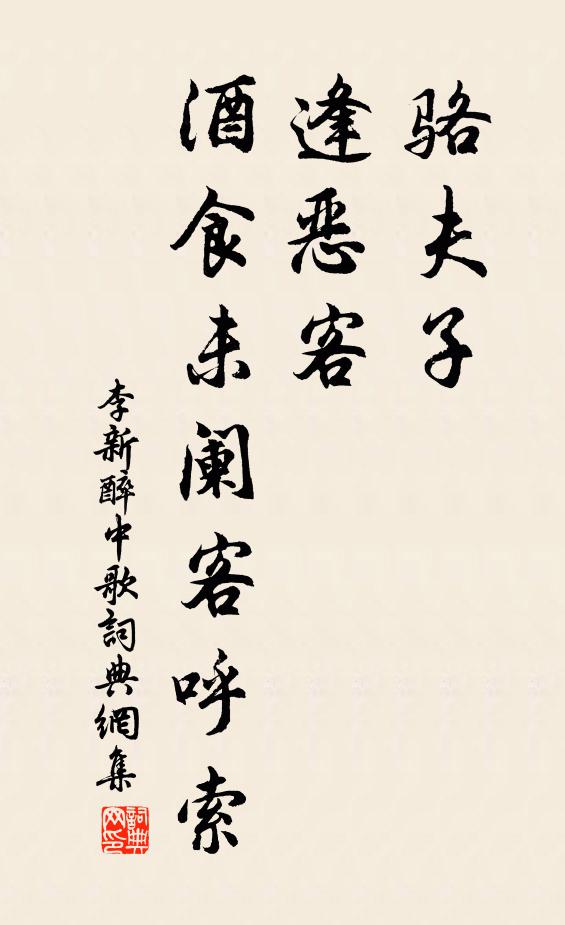 骆夫子
逢惡客
酒食未阑客呼索
李新醉中歌詞典網集
詞典网印